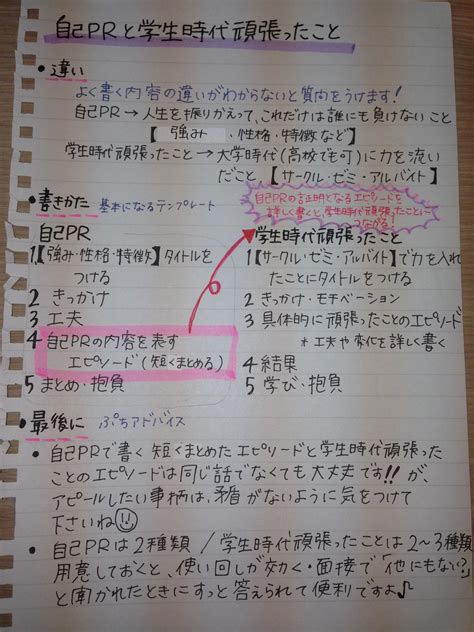 自己PRと学生時代頑張ったこと
・違い
よく書く内容の違いがわからないと質問をうけます!
自己PR→人生を振りかえって、これだけは誰にも負けないこと
【強み・性格・特徴など】
学生時代頑張ったこと→大学時代(高校でも可)に力を流い
だこと。【サークル・ゼミ・アルバイト】
・書きかた 基本になるテンプレート
自己PRの証明となるエピソードを
詳しく書くと、学生時代頑張ったことに
つながる!
自己PR
1【強み・性格・特徴】タイトルを
つける
2 きっかけ
3 工夫
4 自己PRの内容を表す
エピソード(短くまとめる)
5 まとめ・抱負
学生時代頑張ったこと
1【サークル・ゼミ・アルバイト】で力を入れ
たことにタイトルをつける
2 きっかけ・モチベーション
3 具体的に頑張ったことのエピソード
*工夫や変化を詳しく書く
4 結果
5 学び・抱負
・最後に ぷちアドバイス
・自己PRで書く短くまとめたエピソードと学生時代頑張った
ことのエピソードは同じ話でなくても大丈夫です!!が、
アピールしたい事柄は、矛盾がないように気をつけて
下さいね
・自己PRは2種類/学生時代頑張ったことは2〜3種類
用意しておくと、使い回しが効く・面接で「他にもない?」
と聞かれたときにすっと答えられて便利ですよ♪